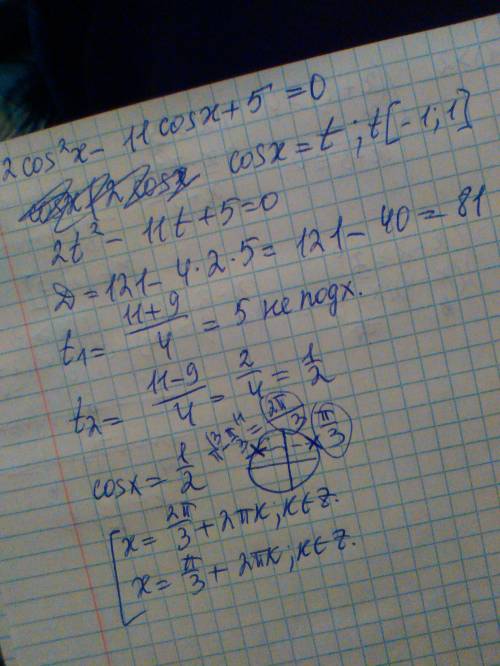 2cos²x - 11cosx + 5 = 0
cosx = t ; t[-1;1]
2t² - 11t + 5 = 0
D = 121 - 4·2·5 = 121 - 40 = 81
t₁ = (11+9)/4 = 5 не подх.
t₂ = (11-9)/4 = 2/4 = 1/2
cosx = 1/2
= 2π/3 π/3
[ x = 2π/3 + 2πk, k∈z.
x = π/3 + 2πk; k∈z.